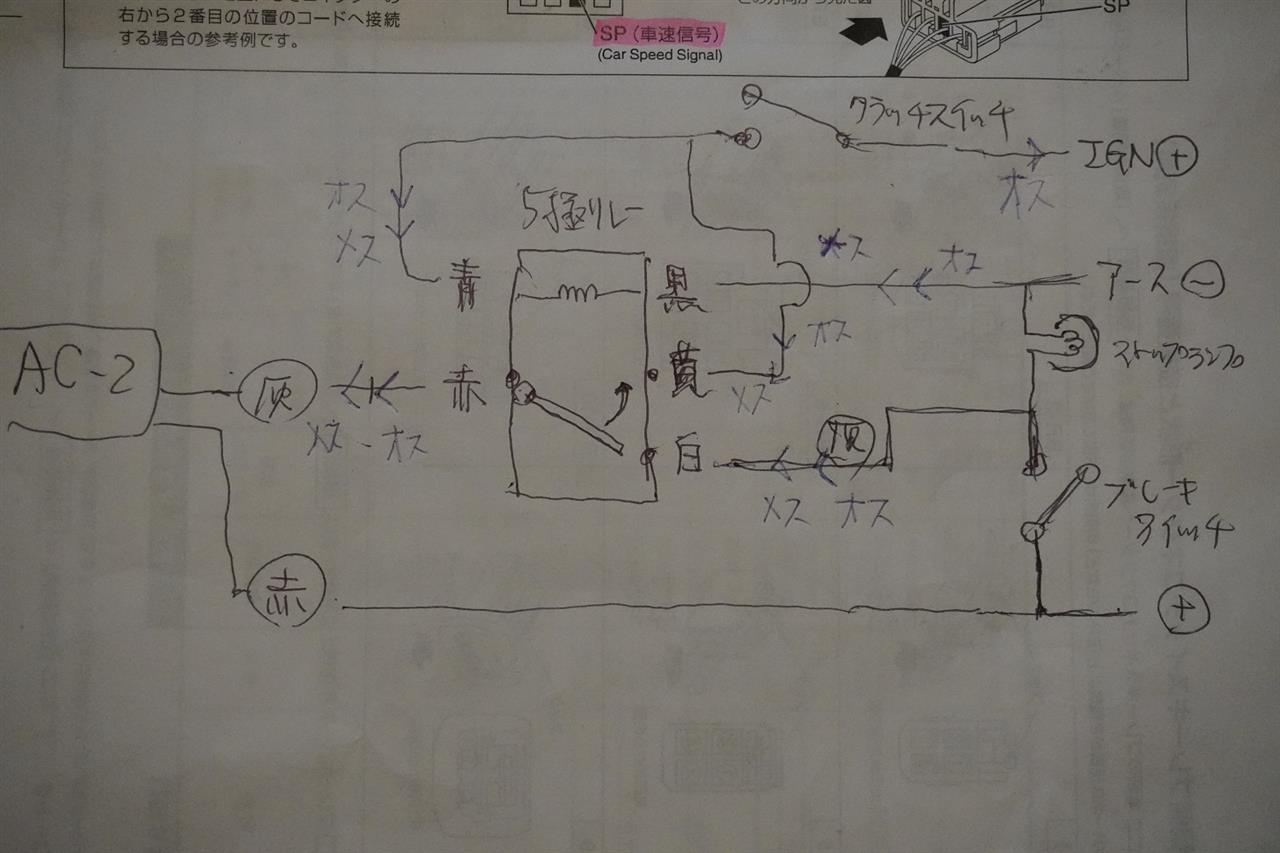 右から2番目の位置のコードへ接続
する場合の参考例です。
SP（車速信号）
(Car Speed Signal)
SP
クラッチスイッチ
IGN⊕
オス
オス
メス
5極リレー
メス
オス
アース⊖
青
黒
オス
ストップランプ
AC-2
灰
赤
黄
メス
メス - オス
白
灰
メス オス
ブレーキ
スイッチ
赤
⊕